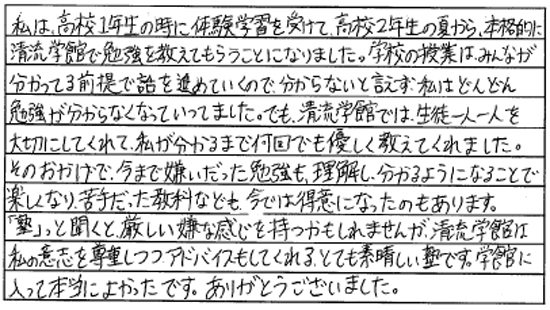 私は、高校1年生の時に体験学習を受けて、高校2年生の夏から、本格的に
清流学館で勉強を教えてもらうことになりました。学校の授業は、みんなが
分かってる前提で話を進めていくので、分からないと言えず、私はどんどん
勉強が分からなくなっていってました。でも、清流学館では、生徒一人一人を
大切にしてくれて、私が分かるまで何回でも優しく教えてくれました。
そのおかげで、今まで嫌いだった勉強も、理解し、分かるようになることで
楽しくなり、苦手だった教科なども、今では得意になったのもあります。
「塾」っと聞くと、厳しい嫌な感じを持つかもしれませんが、清流学館は
私の意志を尊重しつつ、アドバイスもしてくれる、とても素晴しい塾です。学館に
入って本当によかったです。ありがとうございました。